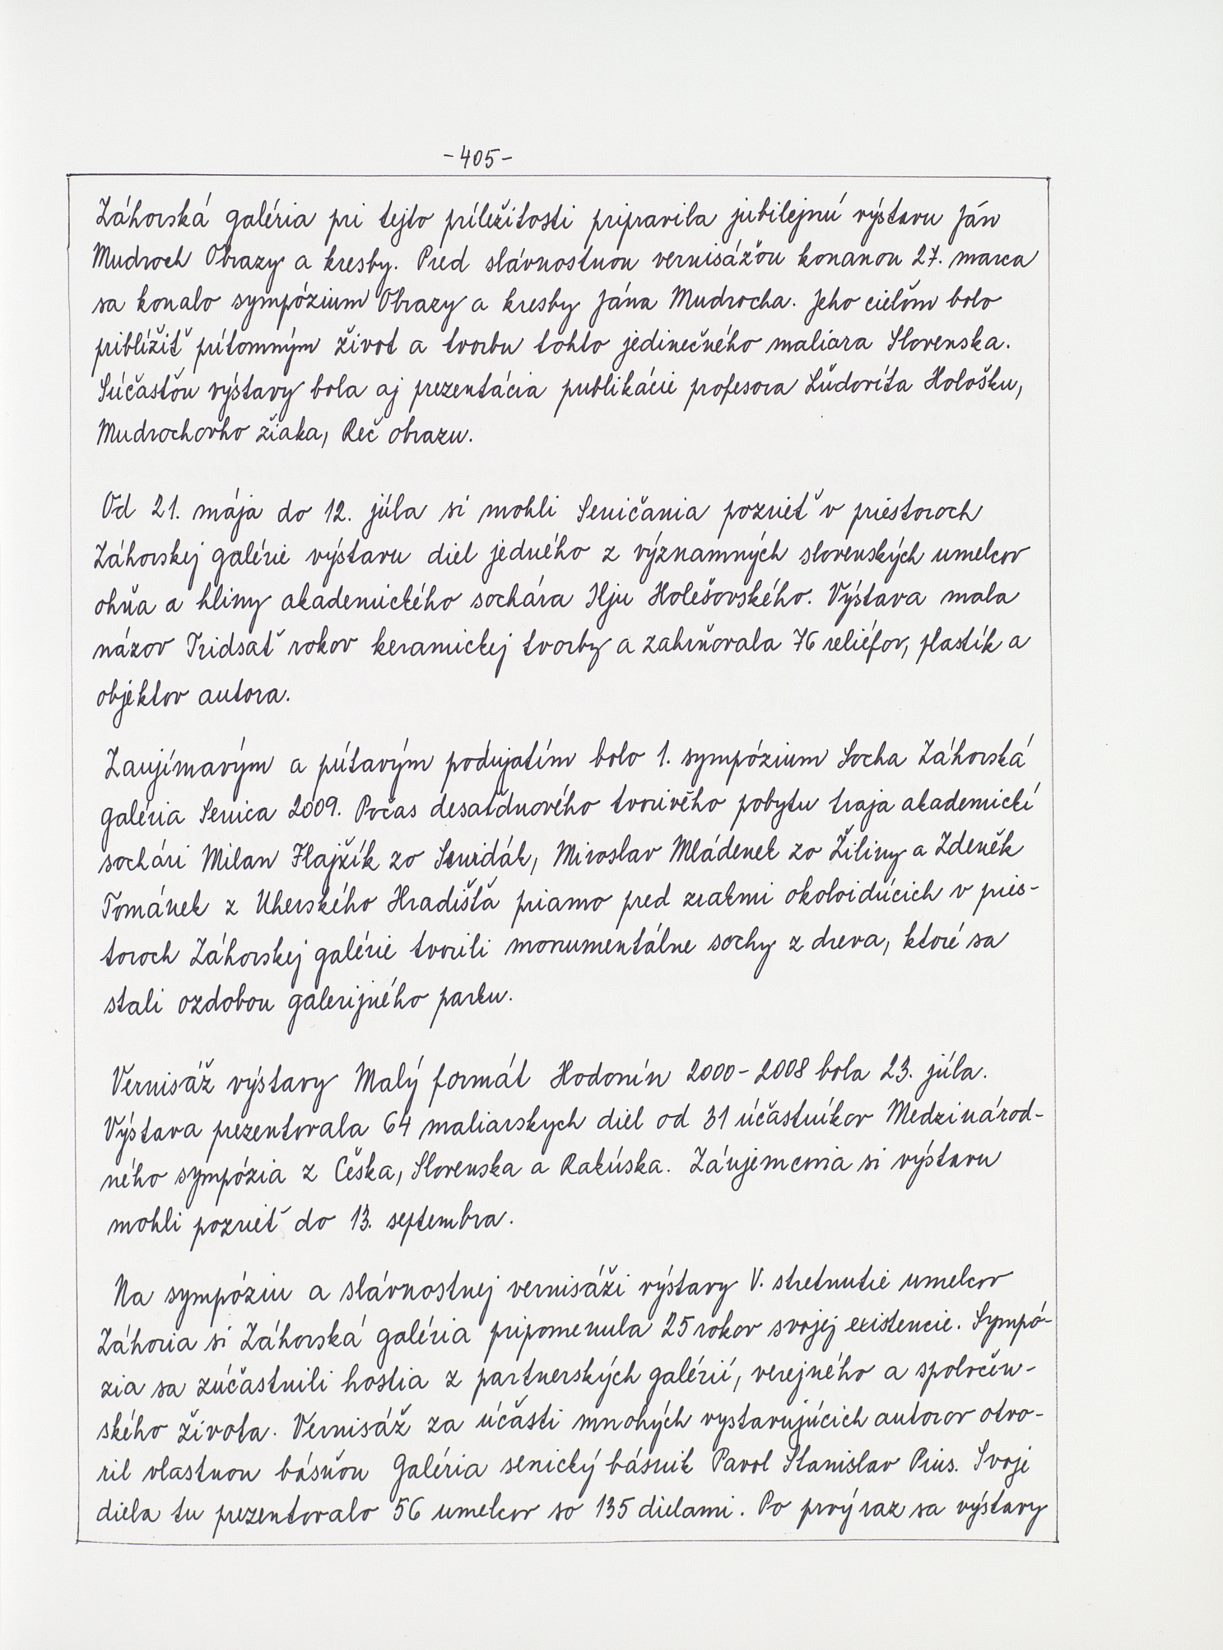 -405-
Záhorská galéria pri tejto príležitosti pripravila jubilejnú výstavu Ján
Mudroch Obrazy a kresby. Pred slávnostnou vernisážou konanou 27. marca
sa konalo sympózium Obrazy a kresby Jána Mudrocha. Jeho cieľom bolo
priblížiť prítomným život a tvorbu tohto jedinečného maliara Slovenska.
Súčasťou výstavy bola aj prezentácia publikácie profesora Ľudovíta Hološku,
Mudrochovho žiaka, Reč obrazu.
Od 21. mája do 12. júla si mohli Seničania pozrieť v priestoroch
Záhorskej galérie výstavu diel jedného z významných slovenských umelcov
ohňa a hliny akademického sochára Ilju Holešovského. Výstava mala
názov Tridsať rokov keramickej tvorby a zahrňovala 76 reliéfov, plastík a
objektov autora.
Zaujímavým a pútavým podujatím bolo 1. sympózium Socha Záhorská
galéria Senica 2009. Počas desaťdnového tvorivého pobytu traja akademickí
sochári Milan Flajžík zo Smrdák, Miroslav Mládenek zo Žiliny a Zdeněk
Tománek z Uherského Hradišťa priamo pred zrakmi okoloidúcich v pries-
toroch Záhorskej galérie tvorili monumentálne sochy z dreva, ktoré sa
stali ozdobou galerijného parku.
Vernisáž výstavy Malý formát Hodonín 2000-2008 bola 23. júla.
Výstava prezentovala 64 maliarskych diel od 31 účastníkov Medzinárod-
ného sympózia z Česka, Slovenska a Rakúska. Záujemcovia si výstavu
mohli pozrieť do 13. septembra.
Na sympóziu a slávnostnej vernisáži výstavy V. stretnutie umelcov
Záhoria si Záhorská galéria pripomenula 25 rokov svojej existencie. Sympó-
zia sa zúčastnili hostia z partnerských galérií, verejného a spoločen-
ského života. Vernisáž za účasti mnohých vystavujúcich autorov otvo-
ril vlastnou básňou Galéria senický básnik Pavol Stanislav Pius. Svoje
diela tu prezentovalo 56 umelcov so 135 dielami. Po prvý raz sa výstavy